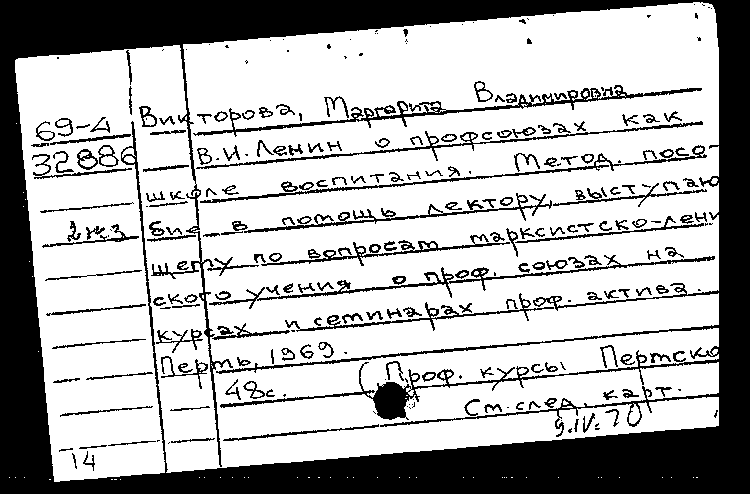 69-4 Викторова, Маргарита Владимировна
32886 В.И.Ленин о профсоюзах как
школе воспитания. Метод. посо-
2экз бие в помощь лектору, выступаю
щему по вопросам марксистско-лени
ского учения о проф. союзах на
курсах и семинарах проф. актива.
Пермь, 1969.
48с. (Проф. курсы Пермско
См. след. карт.
9.IV.70
14